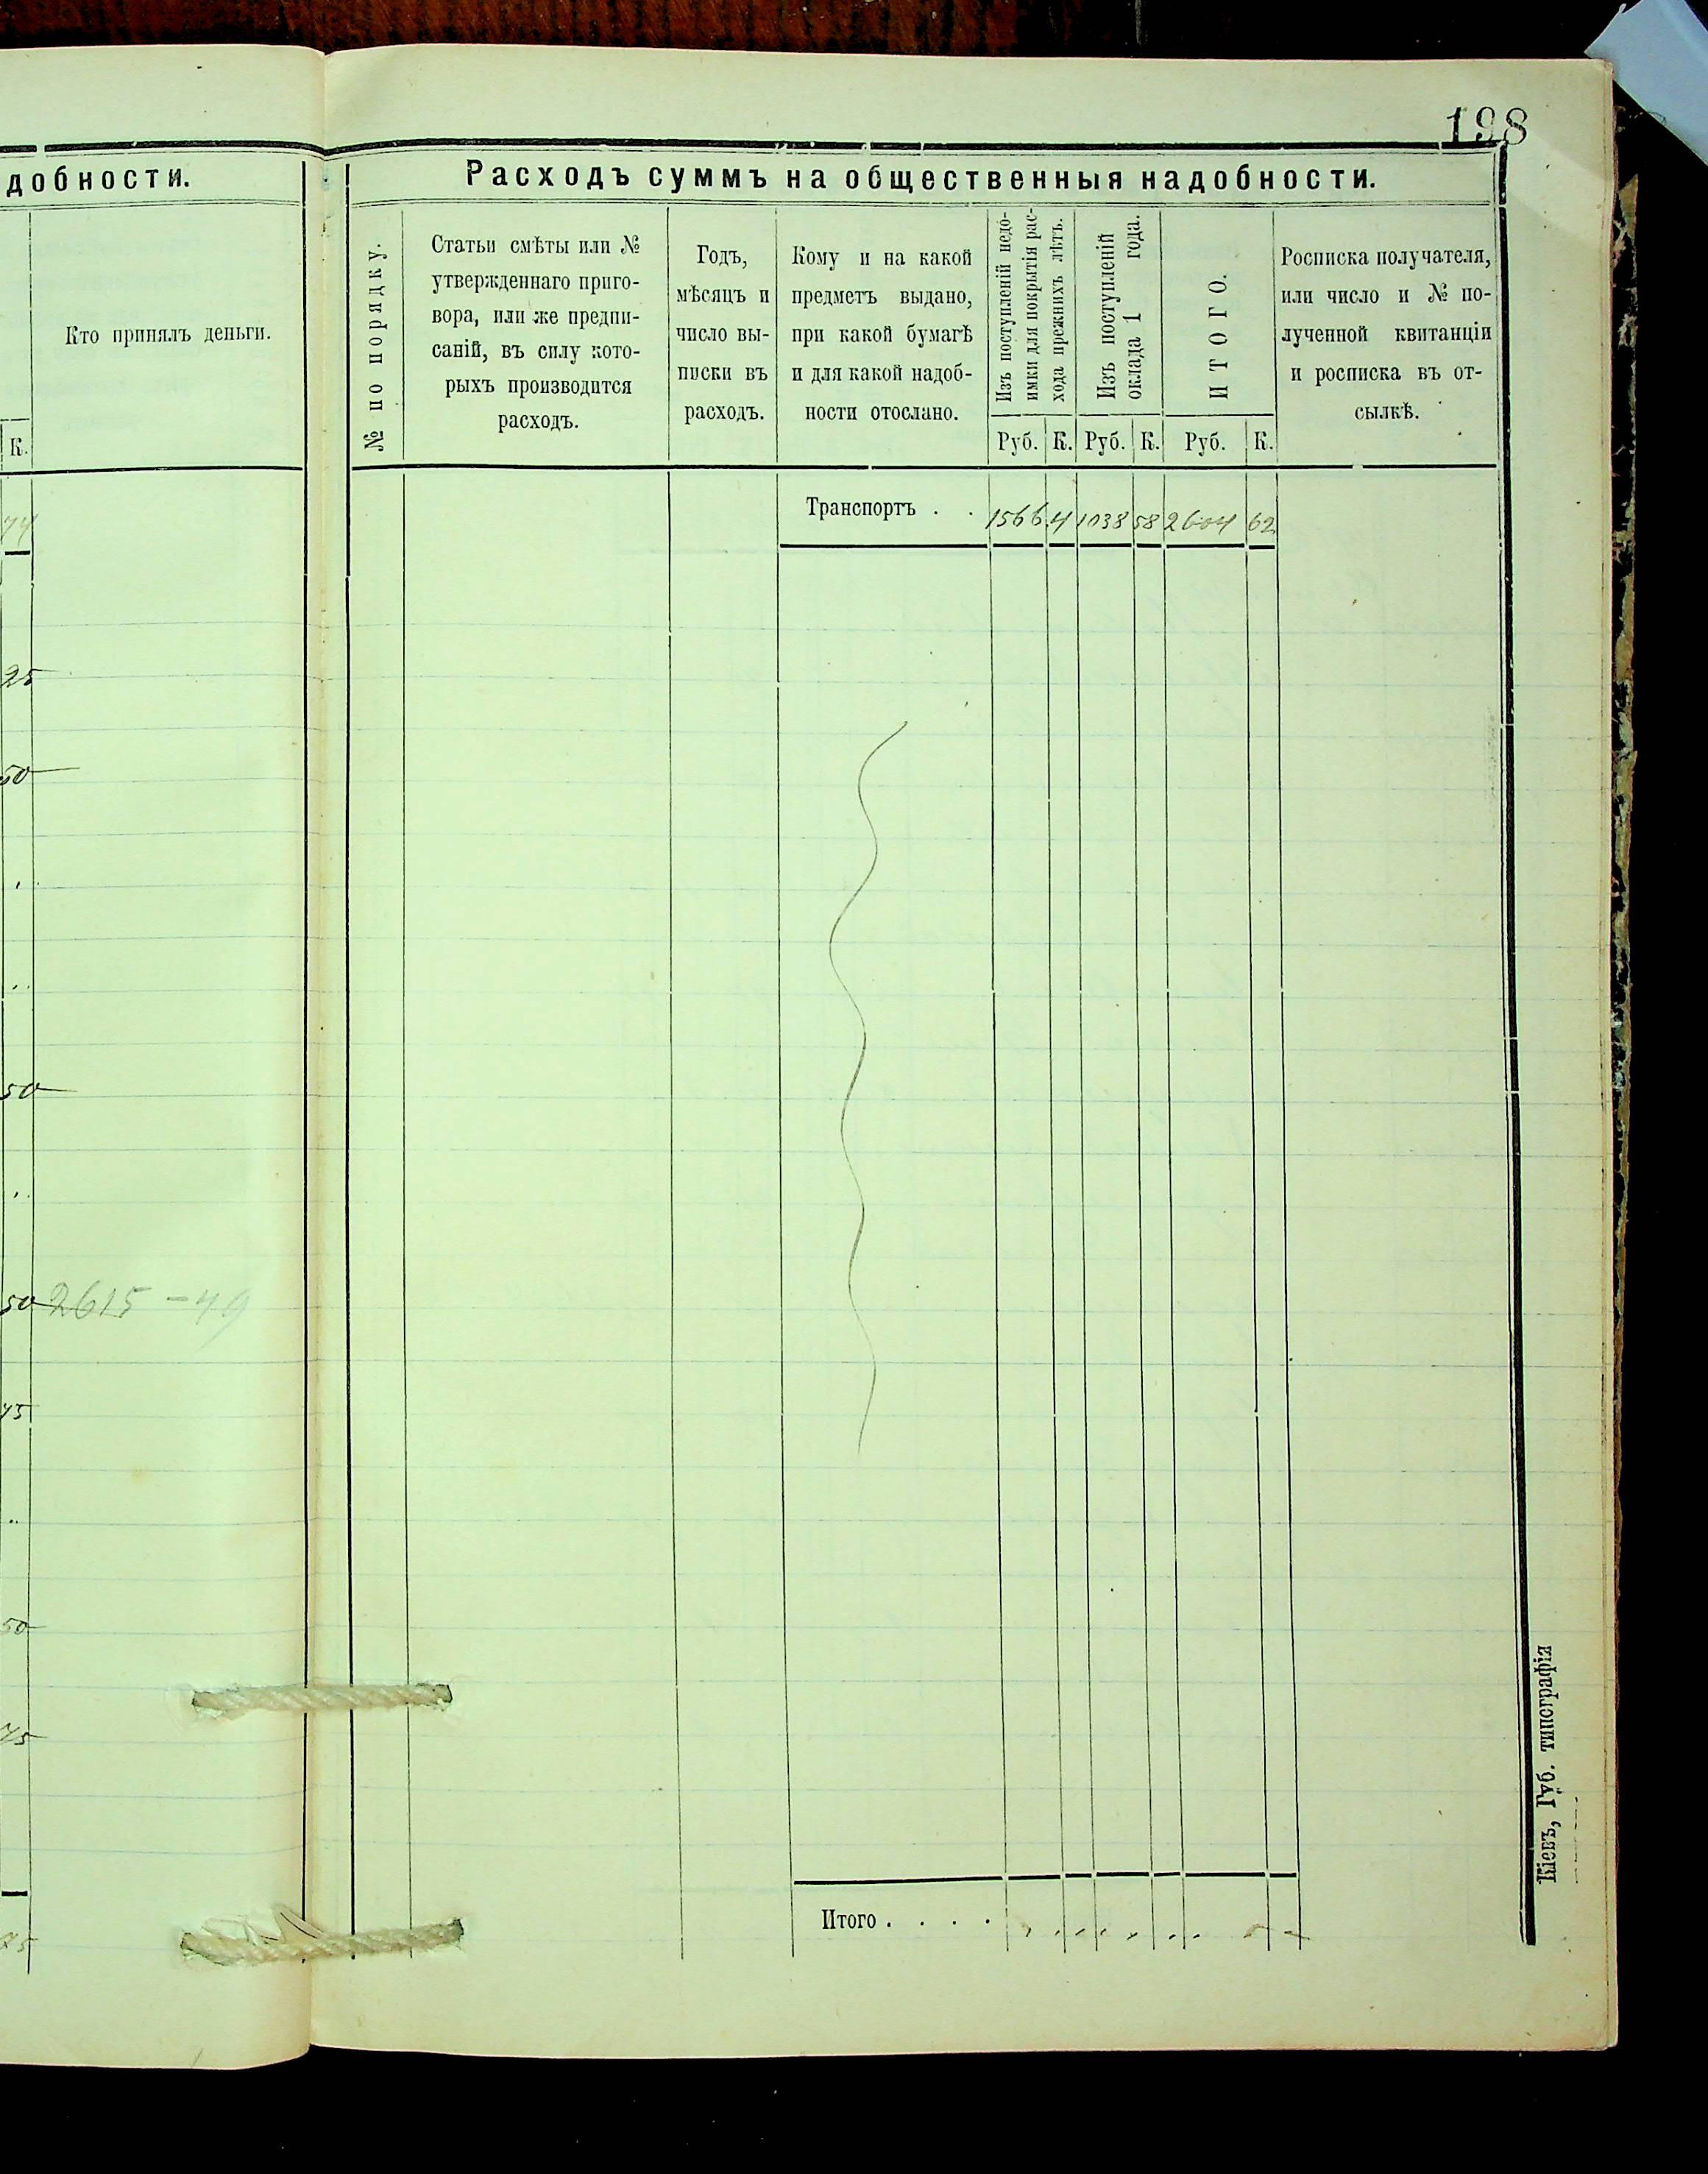 198
добности.
Кто принялъ деньги.
К.
25
50
50
50 2615 - 49
45
50
45
Расходъ суммъ на общественныя надобности.
№ по порядку.
Статьи смѣты или №
утвержденнаго приго-
вора, или же предпи-
саній, въ силу кото-
рыхъ производится
расходъ.
Годъ,
мѣсяцъ и
число вы-
писки въ
расходъ.
Кому и на какой
предметъ выдано,
при какой бумагѣ
и для какой надоб-
ности отослано.
Изъ поступленій недо-
имки для покрытія рас-
хода прежнихъ лѣтъ.
Изъ поступленій
оклада 1 года.
ИТОГО.
Руб. К. Руб. К. Руб. К.
Росписка получателя,
или число и № по-
лученной квитанціи
и росписка въ от-
сылкѣ.
Транспортъ . . 1566 4 1038 58 2604 62
Итого . . . .
Кіевъ, Губ. типографія